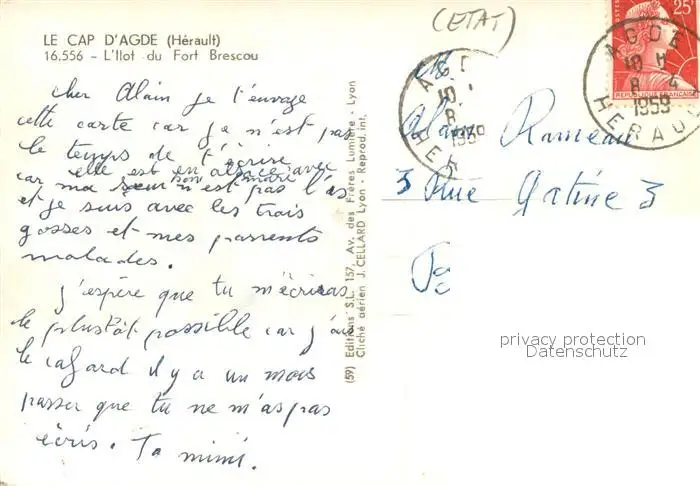 (ETAT)
LE CAP D'AGDE (Hérault)
16.556 - L'Ilot du Fort Brescou
cher Alain je t'envoye
cette carte car je n'est pas
le temps de t'écrire
elle est en alsace avec
son mari
car ma seur n'est pas l'as
et je suis avec les trois
gosses et mes parrents
malades.
j'espère que tu m'écriras
le plustôt possible car j'ai
le cafard il y a un mois
passer que tu ne m'as pas
écris. Ta mimi.
(59) Editions S.L. 157, Av. des Frères Lumière - Lyon
Cliché aérien J. CELLARD Lyon - Reprod. int.
25F
POSTES
REPUBLIQUE FRANÇAISE
AGDE
10 H
8 - 4
1959
HERAULT
AGDE
10
8
1959
HER
Mr
Alain Rameau
3 Rue Gatine 3
privacy protection
Datenschutz